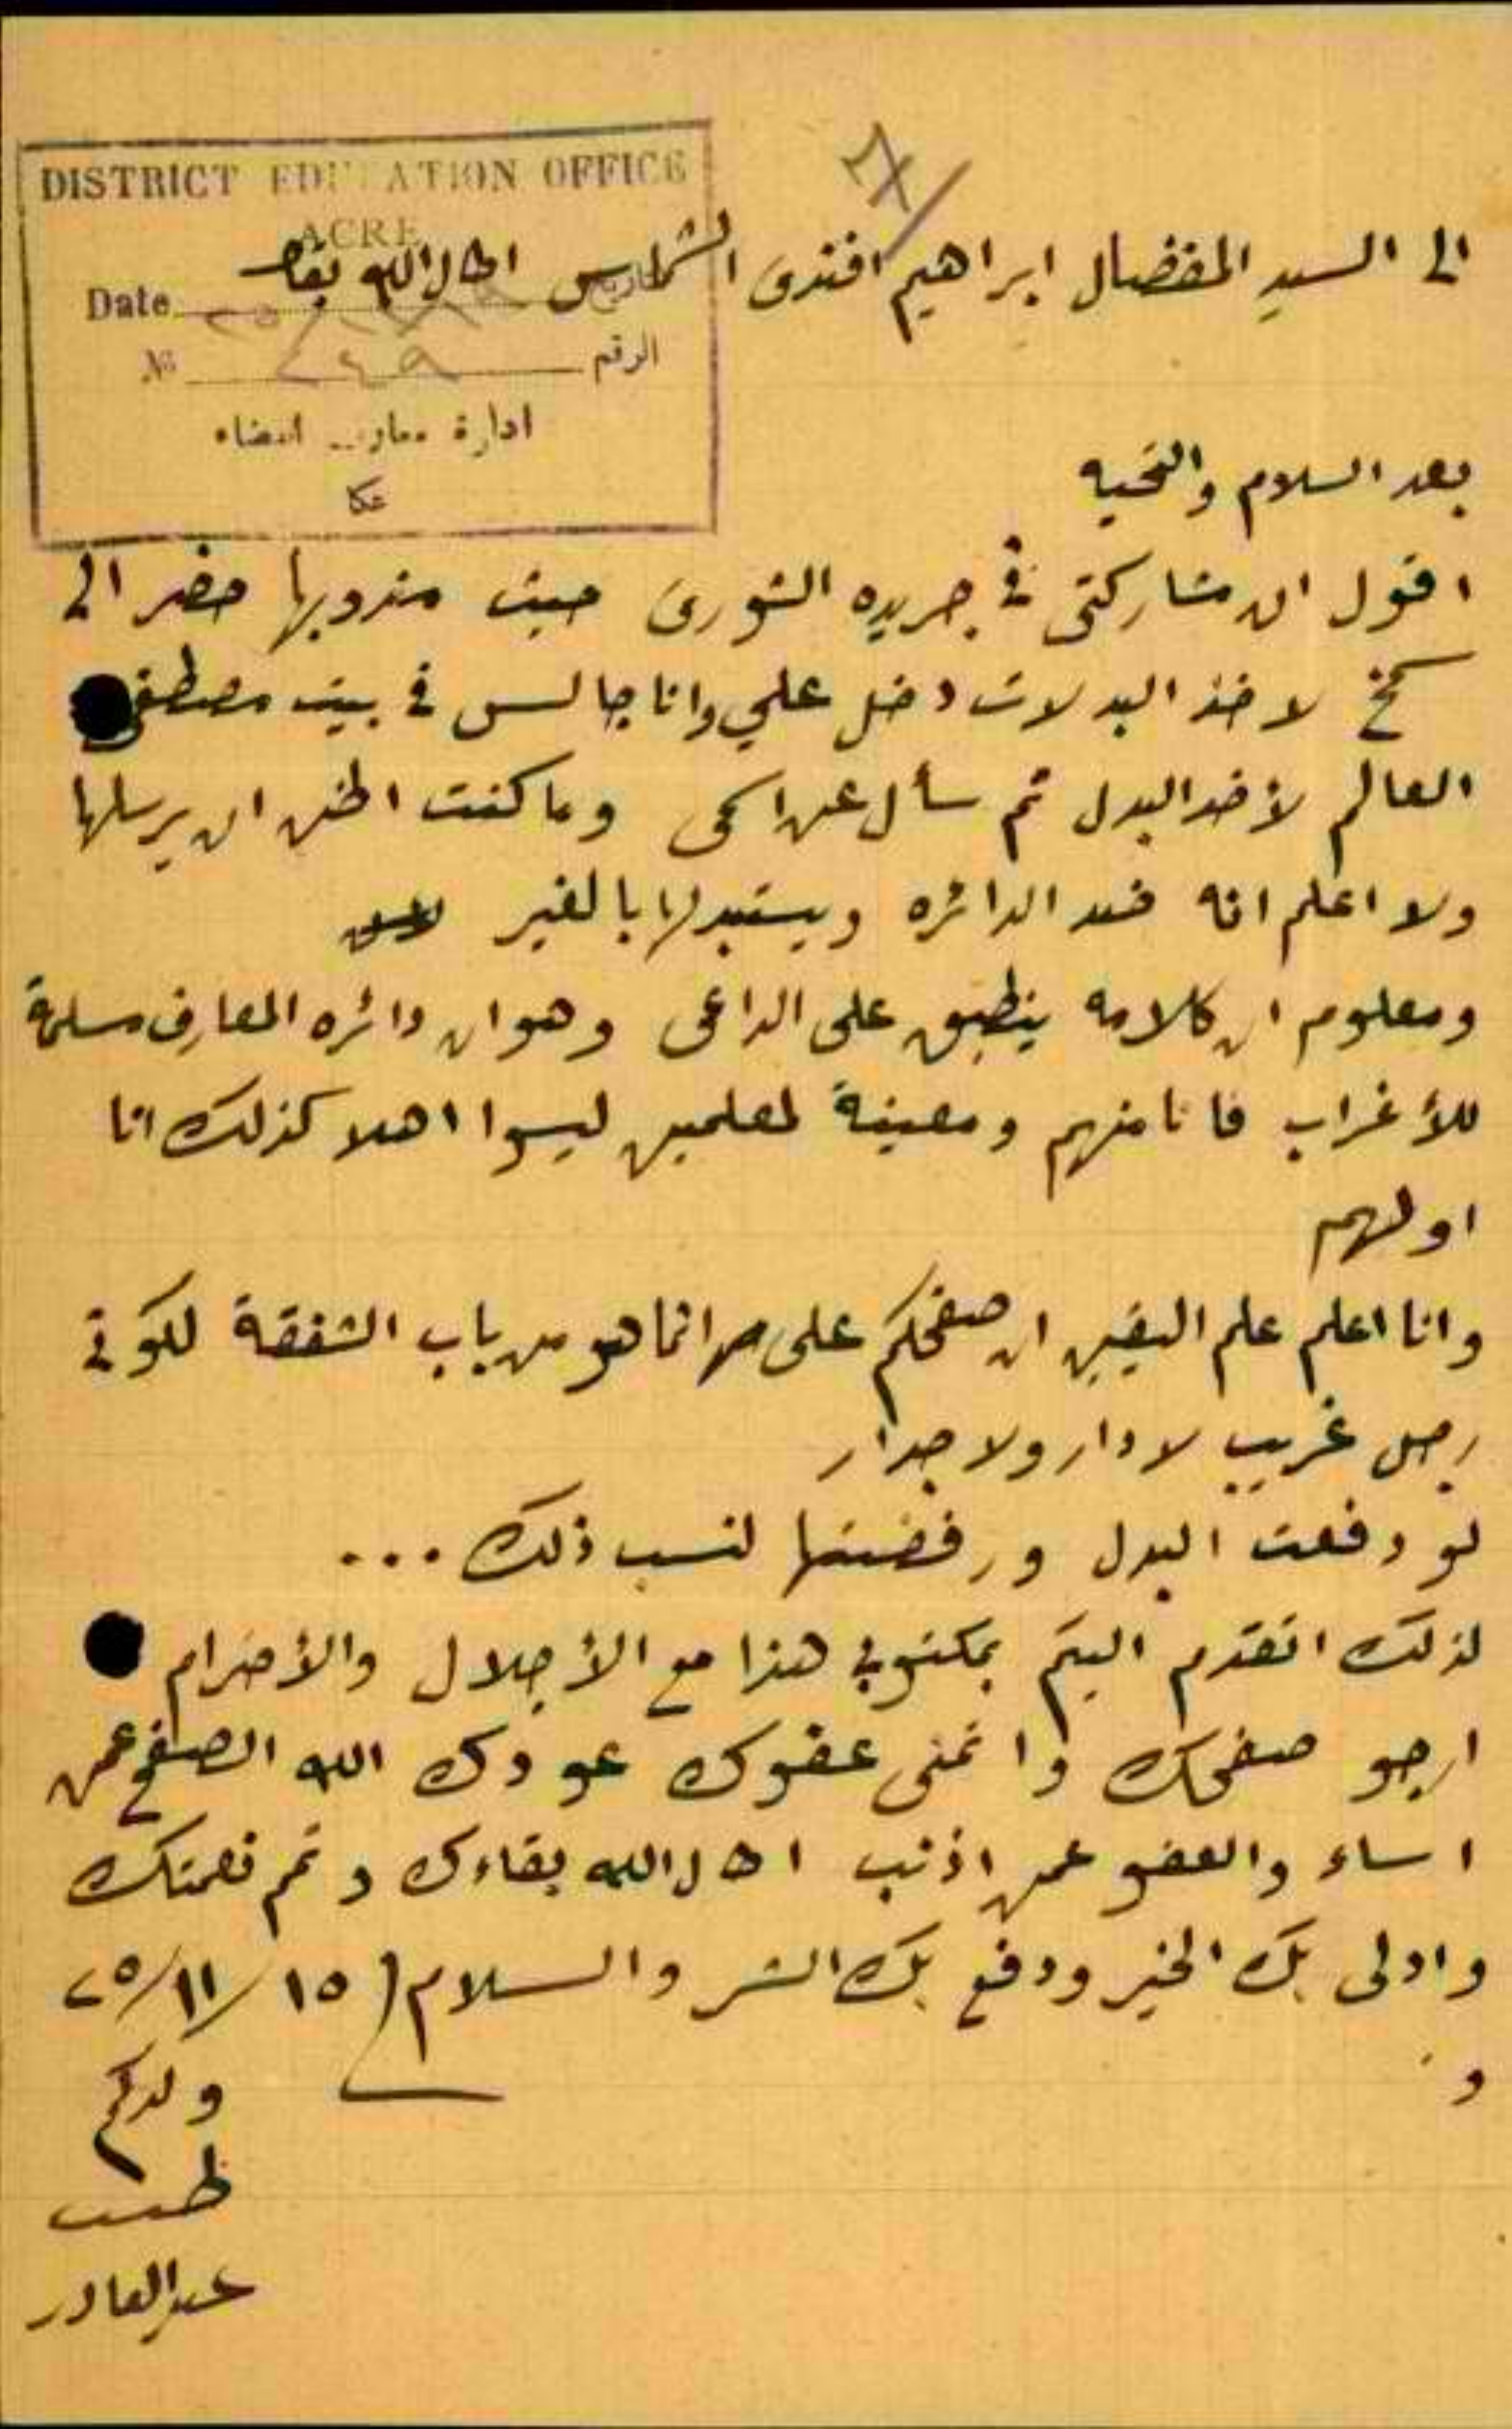 DISTRICT EDUCATION OFFICE
ACRE
Date التاريخ
№ ٢٤٩ الرقم
ادارة معارف القضاء
عكا
الى السيد المفضال ابراهيم افندى اطال الله بقاه
بعد السلام والتحيه
اقول ان مشاركتى فى جريده الشورى حيث مندوبها حضر الى
لاخذ البدلات دخل علي وانا جالس فى بيت مصطفى
العالم لأخذ البدل ثم سأل عن اسمى وما كنت اظن ان يرسلها
ولا اعلم انه ضد الدائره ويستبدلها بالغير
ومعلوم ان كلامه ينطبق على الداعى وهو ان دائره المعارف مسلمة
للأغراب فانا منهم ومعينة لمعلمين ليسوا اهلا كذلك انا
اولهم
وانا اعلم علم اليقين ان صفحكم على انما هو من باب الشفقة لكونى
رجل غريب لا دار ولا جدار
لو دفعت البدل ورفضتها لنسب ذلك ...
لذلك اتقدم اليكم بمكتوبى هذا مع الأجلال والأحترام
ارجو صفحك واتمنى عفوك عودك الله الصفح عمن
اساء والعفو عمن اذنب اطال الله بقاءك وتم نعمتك
واولى بك الخير ودفع بك الشر والسلام ١٥/١١/٢٥
و
ولدكم
عبد القادر